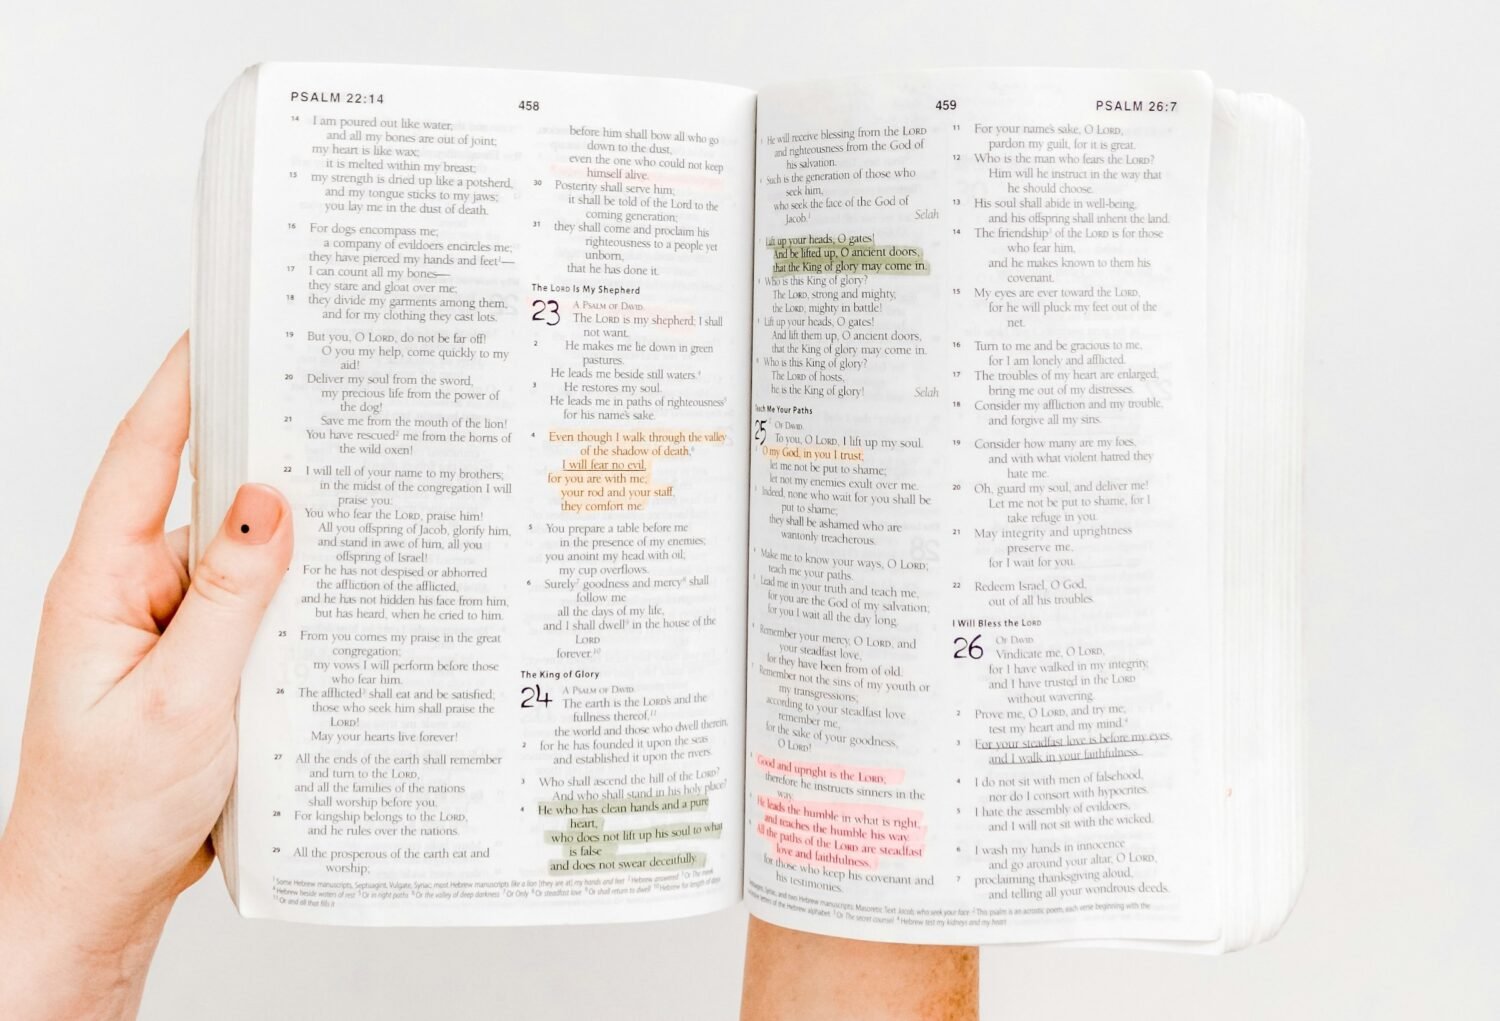 PSALM 22:14
458
14 I am poured out like water,
and all my bones are out of joint;
my heart is like wax;
it is melted within my breast;
15 my strength is dried up like a potsherd,
and my tongue sticks to my jaws;
you lay me in the dust of death.
16 For dogs encompass me;
a company of evildoers encircles me;
they have pierced my hands and feet¹—
17 I can count all my bones—
they stare and gloat over me;
18 they divide my garments among them,
and for my clothing they cast lots.
19 But you, O LORD, do not be far off!
O you my help, come quickly to my
aid!
20 Deliver my soul from the sword,
my precious life from the power of
the dog!
21 Save me from the mouth of the lion!
You have rescued² me from the horns of
the wild oxen!
22 I will tell of your name to my brothers;
in the midst of the congregation I will
praise you:
You who fear the LORD, praise him!
All you offspring of Jacob, glorify him,
and stand in awe of him, all you
offspring of Israel!
For he has not despised or abhorred
the affliction of the afflicted,
and he has not hidden his face from him,
but has heard, when he cried to him.
25 From you comes my praise in the great
congregation;
my vows I will perform before those
who fear him.
26 The afflicted³ shall eat and be satisfied;
those who seek him shall praise the
LORD!
May your hearts live forever!
27 All the ends of the earth shall remember
and turn to the LORD,
and all the families of the nations
shall worship before you.
28 For kingship belongs to the LORD,
and he rules over the nations.
29 All the prosperous of the earth eat and
worship;
before him shall bow all who go
down to the dust,
even the one who could not keep
himself alive.
30 Posterity shall serve him;
it shall be told of the Lord to the
coming generation;
31 they shall come and proclaim his
righteousness to a people yet
unborn,
that he has done it.
The LORD Is My Shepherd
23 A PSALM OF DAVID.
The LORD is my shepherd; I shall
not want.
2 He makes me lie down in green
pastures.
He leads me beside still waters.⁴
3 He restores my soul.
He leads me in paths of righteousness⁵
for his name's sake.
4 Even though I walk through the valley
of the shadow of death,⁶
I will fear no evil,
for you are with me;
your rod and your staff,
they comfort me.
5 You prepare a table before me
in the presence of my enemies;
you anoint my head with oil;
my cup overflows.
6 Surely⁷ goodness and mercy⁸ shall
follow me
all the days of my life,
and I shall dwell⁹ in the house of the
LORD
forever.¹⁰
The King of Glory
24 A PSALM OF DAVID.
The earth is the LORD's and the
fullness thereof,¹¹
the world and those who dwell therein,
2 for he has founded it upon the seas
and established it upon the rivers.
3 Who shall ascend the hill of the LORD?
And who shall stand in his holy place?
4 He who has clean hands and a pure
heart,
who does not lift up his soul to what
is false
and does not swear deceitfully.
¹ Some Hebrew manuscripts, Septuagint, Vulgate, Syriac; most Hebrew manuscripts like a lion [they are at] my hands and feet ² Hebrew answered ³ Or The meek
⁴ Hebrew beside waters of rest ⁵ Or in right paths ⁶ Or the valley of deep darkness ⁷ Or Only ⁸ Or steadfast love ⁹ Or shall return to dwell ¹⁰ Hebrew for length of days
¹¹ Or and all that fills it
459
PSALM 26:7
He will receive blessing from the LORD
and righteousness from the God of
his salvation.
Such is the generation of those who
seek him,
who seek the face of the God of
Jacob.¹ Selah
Lift up your heads, O gates!
And be lifted up, O ancient doors,
that the King of glory may come in.
Who is this King of glory?
The LORD, strong and mighty,
the LORD, mighty in battle!
Lift up your heads, O gates!
And lift them up, O ancient doors,
that the King of glory may come in.
Who is this King of glory?
The LORD of hosts,
he is the King of glory! Selah
Teach Me Your Paths
25 ² OF DAVID.
To you, O LORD, I lift up my soul.
O my God, in you I trust;
let me not be put to shame;
let not my enemies exult over me.
Indeed, none who wait for you shall be
put to shame;
they shall be ashamed who are
wantonly treacherous.
Make me to know your ways, O LORD;
teach me your paths.
Lead me in your truth and teach me,
for you are the God of my salvation;
for you I wait all the day long.
Remember your mercy, O LORD, and
your steadfast love,
for they have been from of old.
Remember not the sins of my youth or
my transgressions;
according to your steadfast love
remember me,
for the sake of your goodness,
O LORD!
Good and upright is the LORD;
therefore he instructs sinners in the
way.
He leads the humble in what is right,
and teaches the humble his way.
All the paths of the LORD are steadfast
love and faithfulness,
for those who keep his covenant and
his testimonies.
11 For your name's sake, O LORD,
pardon my guilt, for it is great.
12 Who is the man who fears the LORD?
Him will he instruct in the way that
he should choose.
13 His soul shall abide in well-being,
and his offspring shall inherit the land.
14 The friendship³ of the LORD is for those
who fear him,
and he makes known to them his
covenant.
15 My eyes are ever toward the LORD,
for he will pluck my feet out of the
net.
16 Turn to me and be gracious to me,
for I am lonely and afflicted.
17 The troubles of my heart are enlarged;
bring me out of my distresses.
18 Consider my affliction and my trouble,
and forgive all my sins.
19 Consider how many are my foes,
and with what violent hatred they
hate me.
20 Oh, guard my soul, and deliver me!
Let me not be put to shame, for I
take refuge in you.
21 May integrity and uprightness
preserve me,
for I wait for you.
22 Redeem Israel, O God,
out of all his troubles.
I Will Bless the LORD
26 OF DAVID.
Vindicate me, O LORD,
for I have walked in my integrity,
and I have trusted in the LORD
without wavering.
2 Prove me, O LORD, and try me;
test my heart and my mind.⁴
3 For your steadfast love is before my eyes,
and I walk in your faithfulness.
4 I do not sit with men of falsehood,
nor do I consort with hypocrites.
5 I hate the assembly of evildoers,
and I will not sit with the wicked.
6 I wash my hands in innocence
and go around your altar, O LORD,
7 proclaiming thanksgiving aloud,
and telling all your wondrous deeds.
Syriac, and two Hebrew manuscripts; Masoretic Text Jacob, who seek your face ² This psalm is an acrostic poem, each verse beginning with the
letters of the Hebrew alphabet ³ Or The secret counsel ⁴ Hebrew test my kidneys and my heart